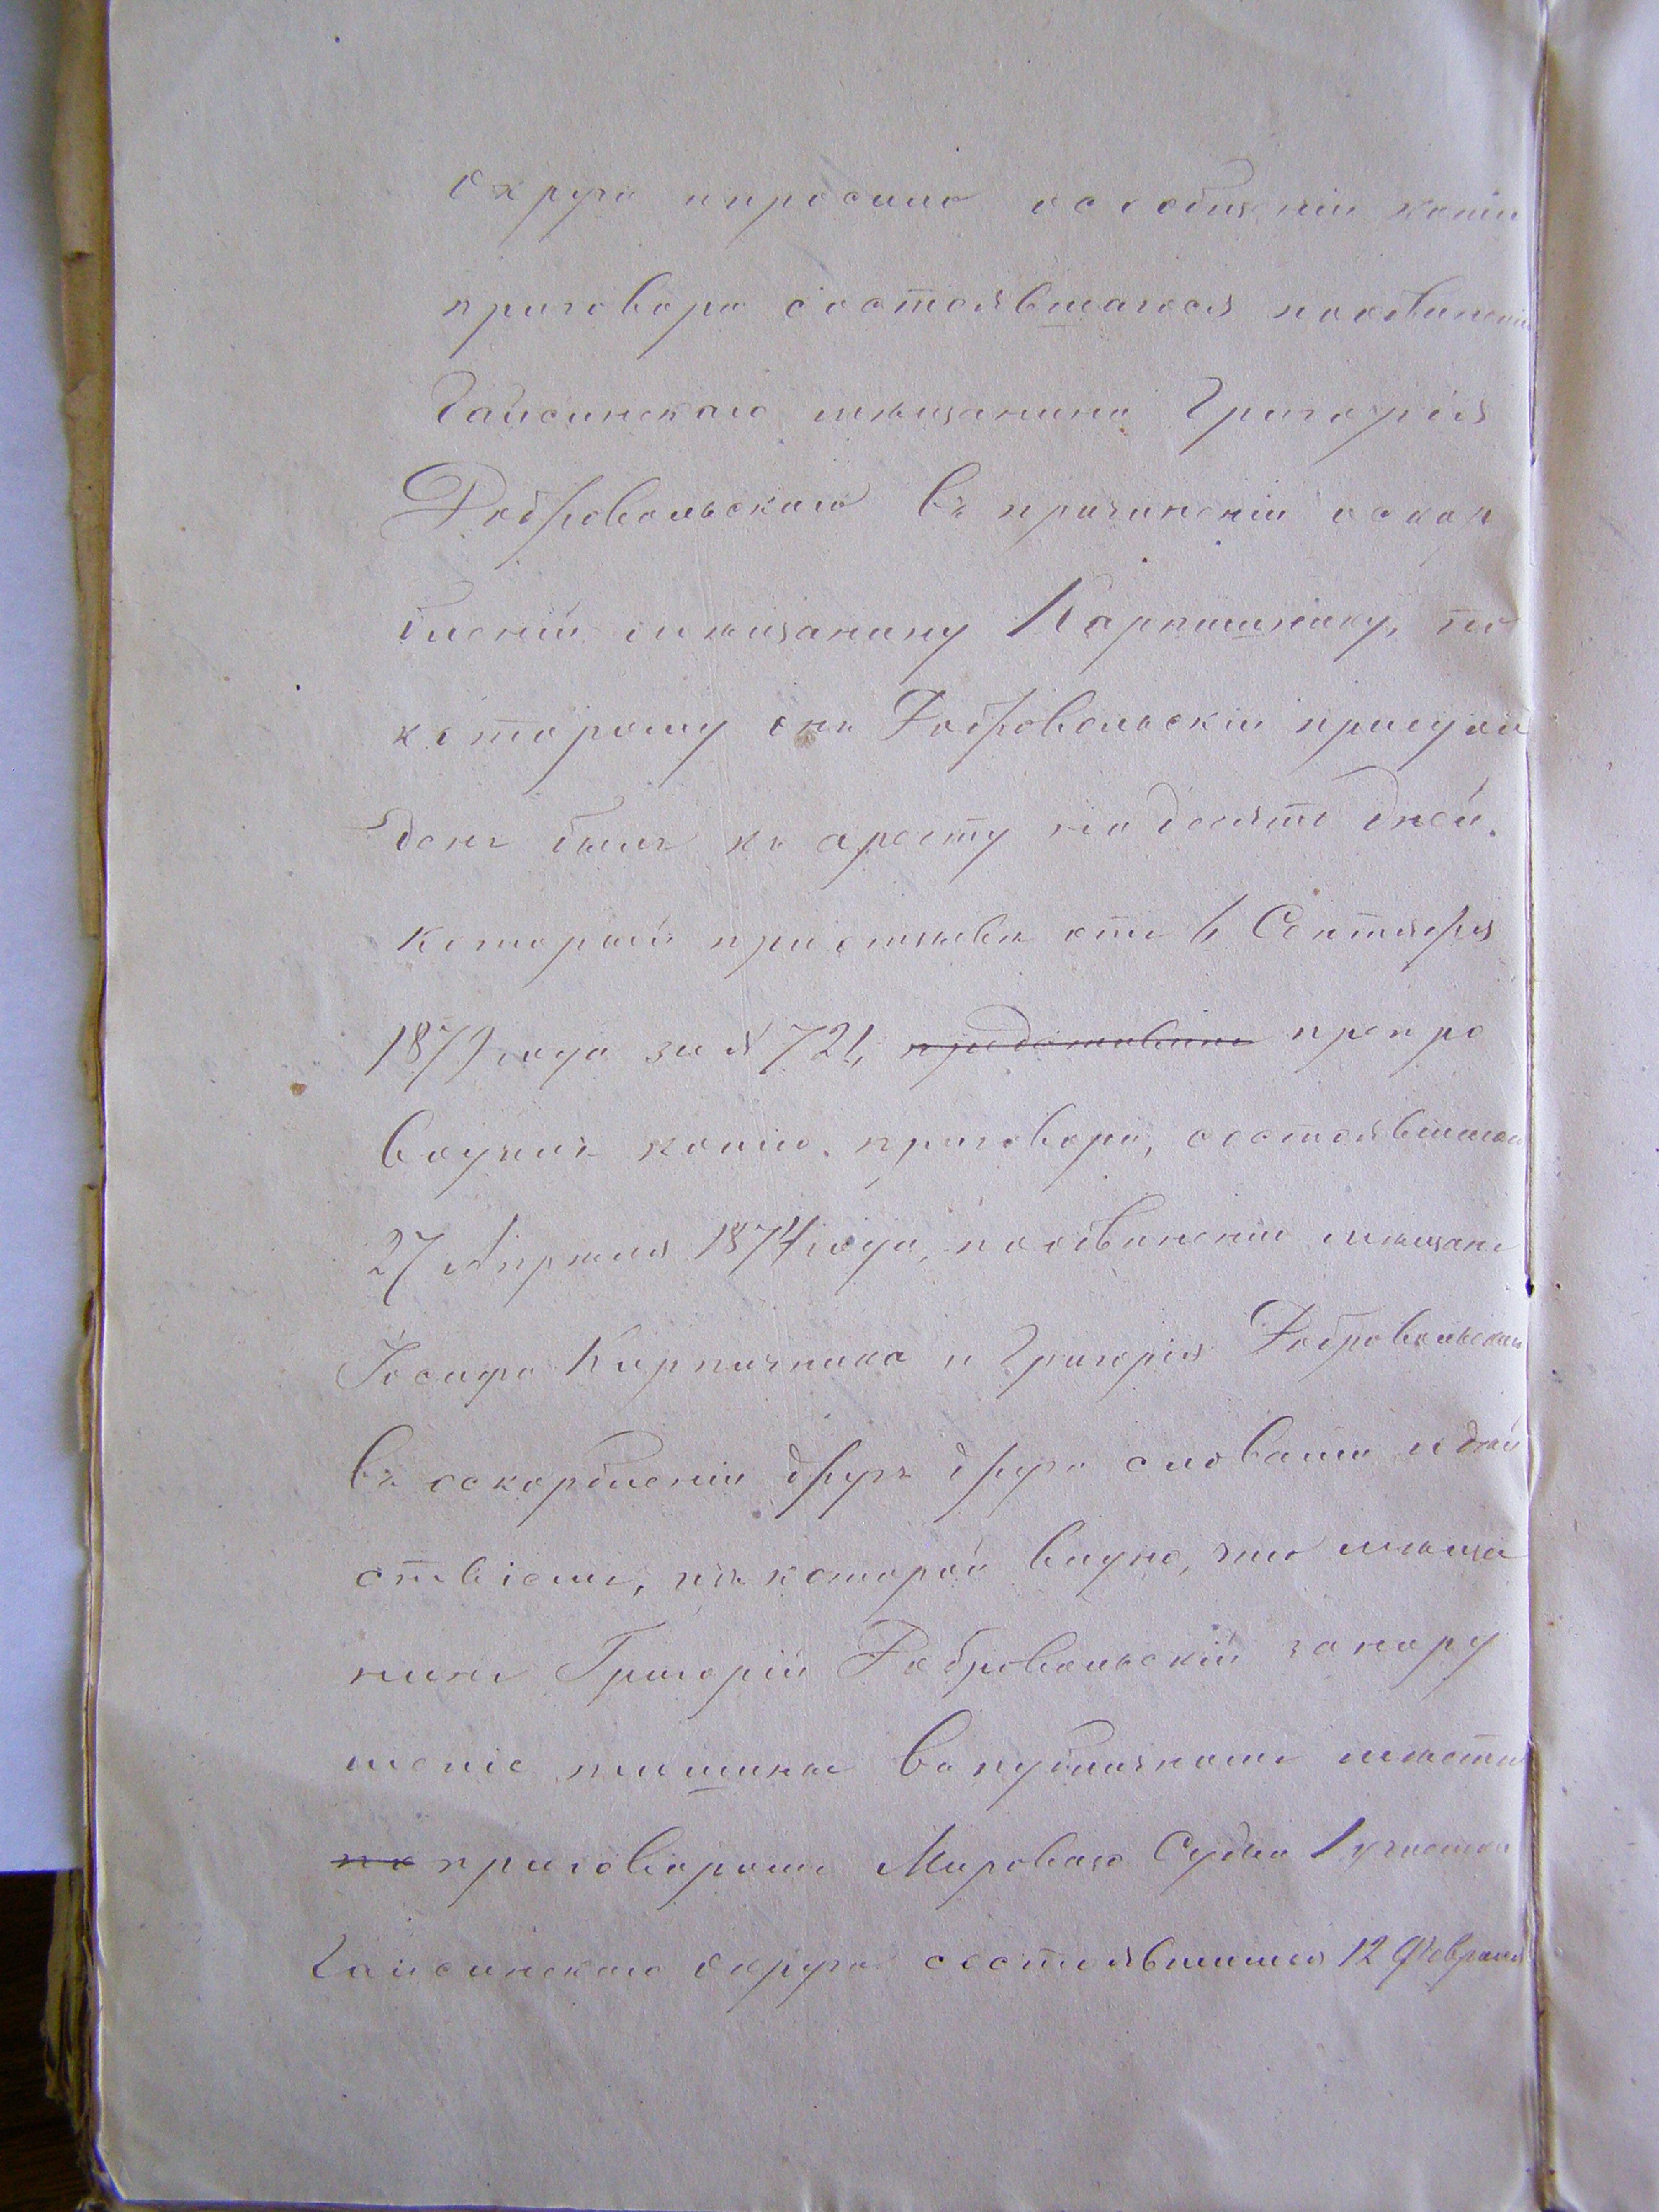 округа и просила о сообщеніи копіи
приговора состоявшагося по обвиненію
Гайсинскаго мѣщанина Григорія
Добровольскаго въ причиненіи оскор
бленій мѣщанину Карпишнику, по
которому онъ Добровольскій присуж
денъ былъ къ аресту на десять дней.
который при отзывѣ отъ 6 Сентября
1879 года за № 721, представилъ препро
водилъ копію приговора, состоявшагося
27 Апрѣля 1874 года, по обвиненію мѣщанъ
Іосифа Кирпичника и Григорія Добровольскаго
въ оскорбленіи другъ друга словами и дѣй
ствіемъ, изъ которой видно, что мѣща
нинъ Григорій Добровольскій за нару
шеніе тишины въ публичномъ мѣстѣ
по приговоромъ Мироваго Судьи 1 участка
Гайсинскаго округа состоявшимся 12 Февраля